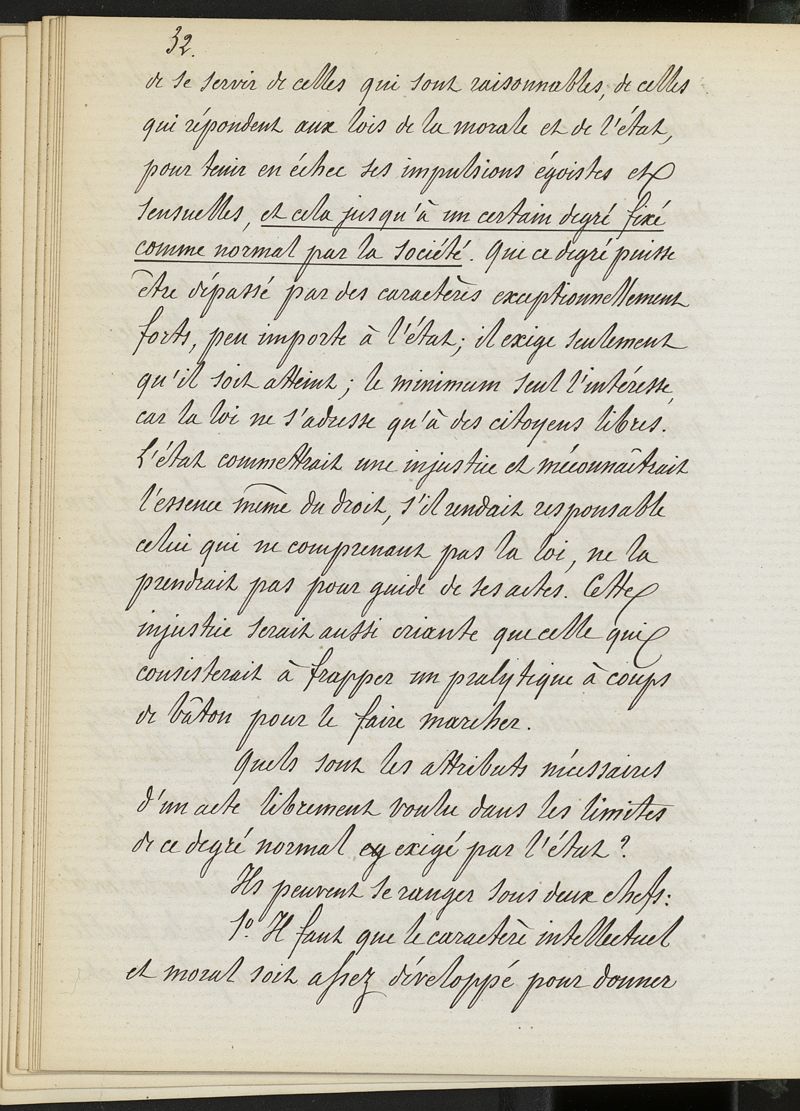 32.
de se servir de celles qui sont raisonnables, de celles
qui répondent aux lois de la morale et de l'état,
pour tenir en échec ses impulsions égoistes et
sensuelles, et cela jusqu'à un certain degré fixé
comme normal par la société. Que ce degré puisse
être dépassé par des caractères exceptionnellement
forts, peu importe à l'état; il exige seulement
qu'il soit atteint; le minimum seul l'intéresse,
car la loi ne s'adresse qu'à des citoyens libres.
L'état commettrait une injustice et méconnaîtrait
l'essence même du droit, s'il rendait responsable
celui qui ne comprenant pas la loi, ne la
prendrait pas pour guide de ses actes. Cette
injustice serait aussi criante que celle qui
consisterait à frapper un pralytique à coups
de bâton pour le faire marcher.
Quels sont les attributs nécessaires
d'un acte librement voulu dans les limites
de ce degré normal exigé par l'état?
Ils peuvent se ranger sous deux chefs:
1º. Il faut que le caractère intellectuel
et moral soit assez développé pour donner